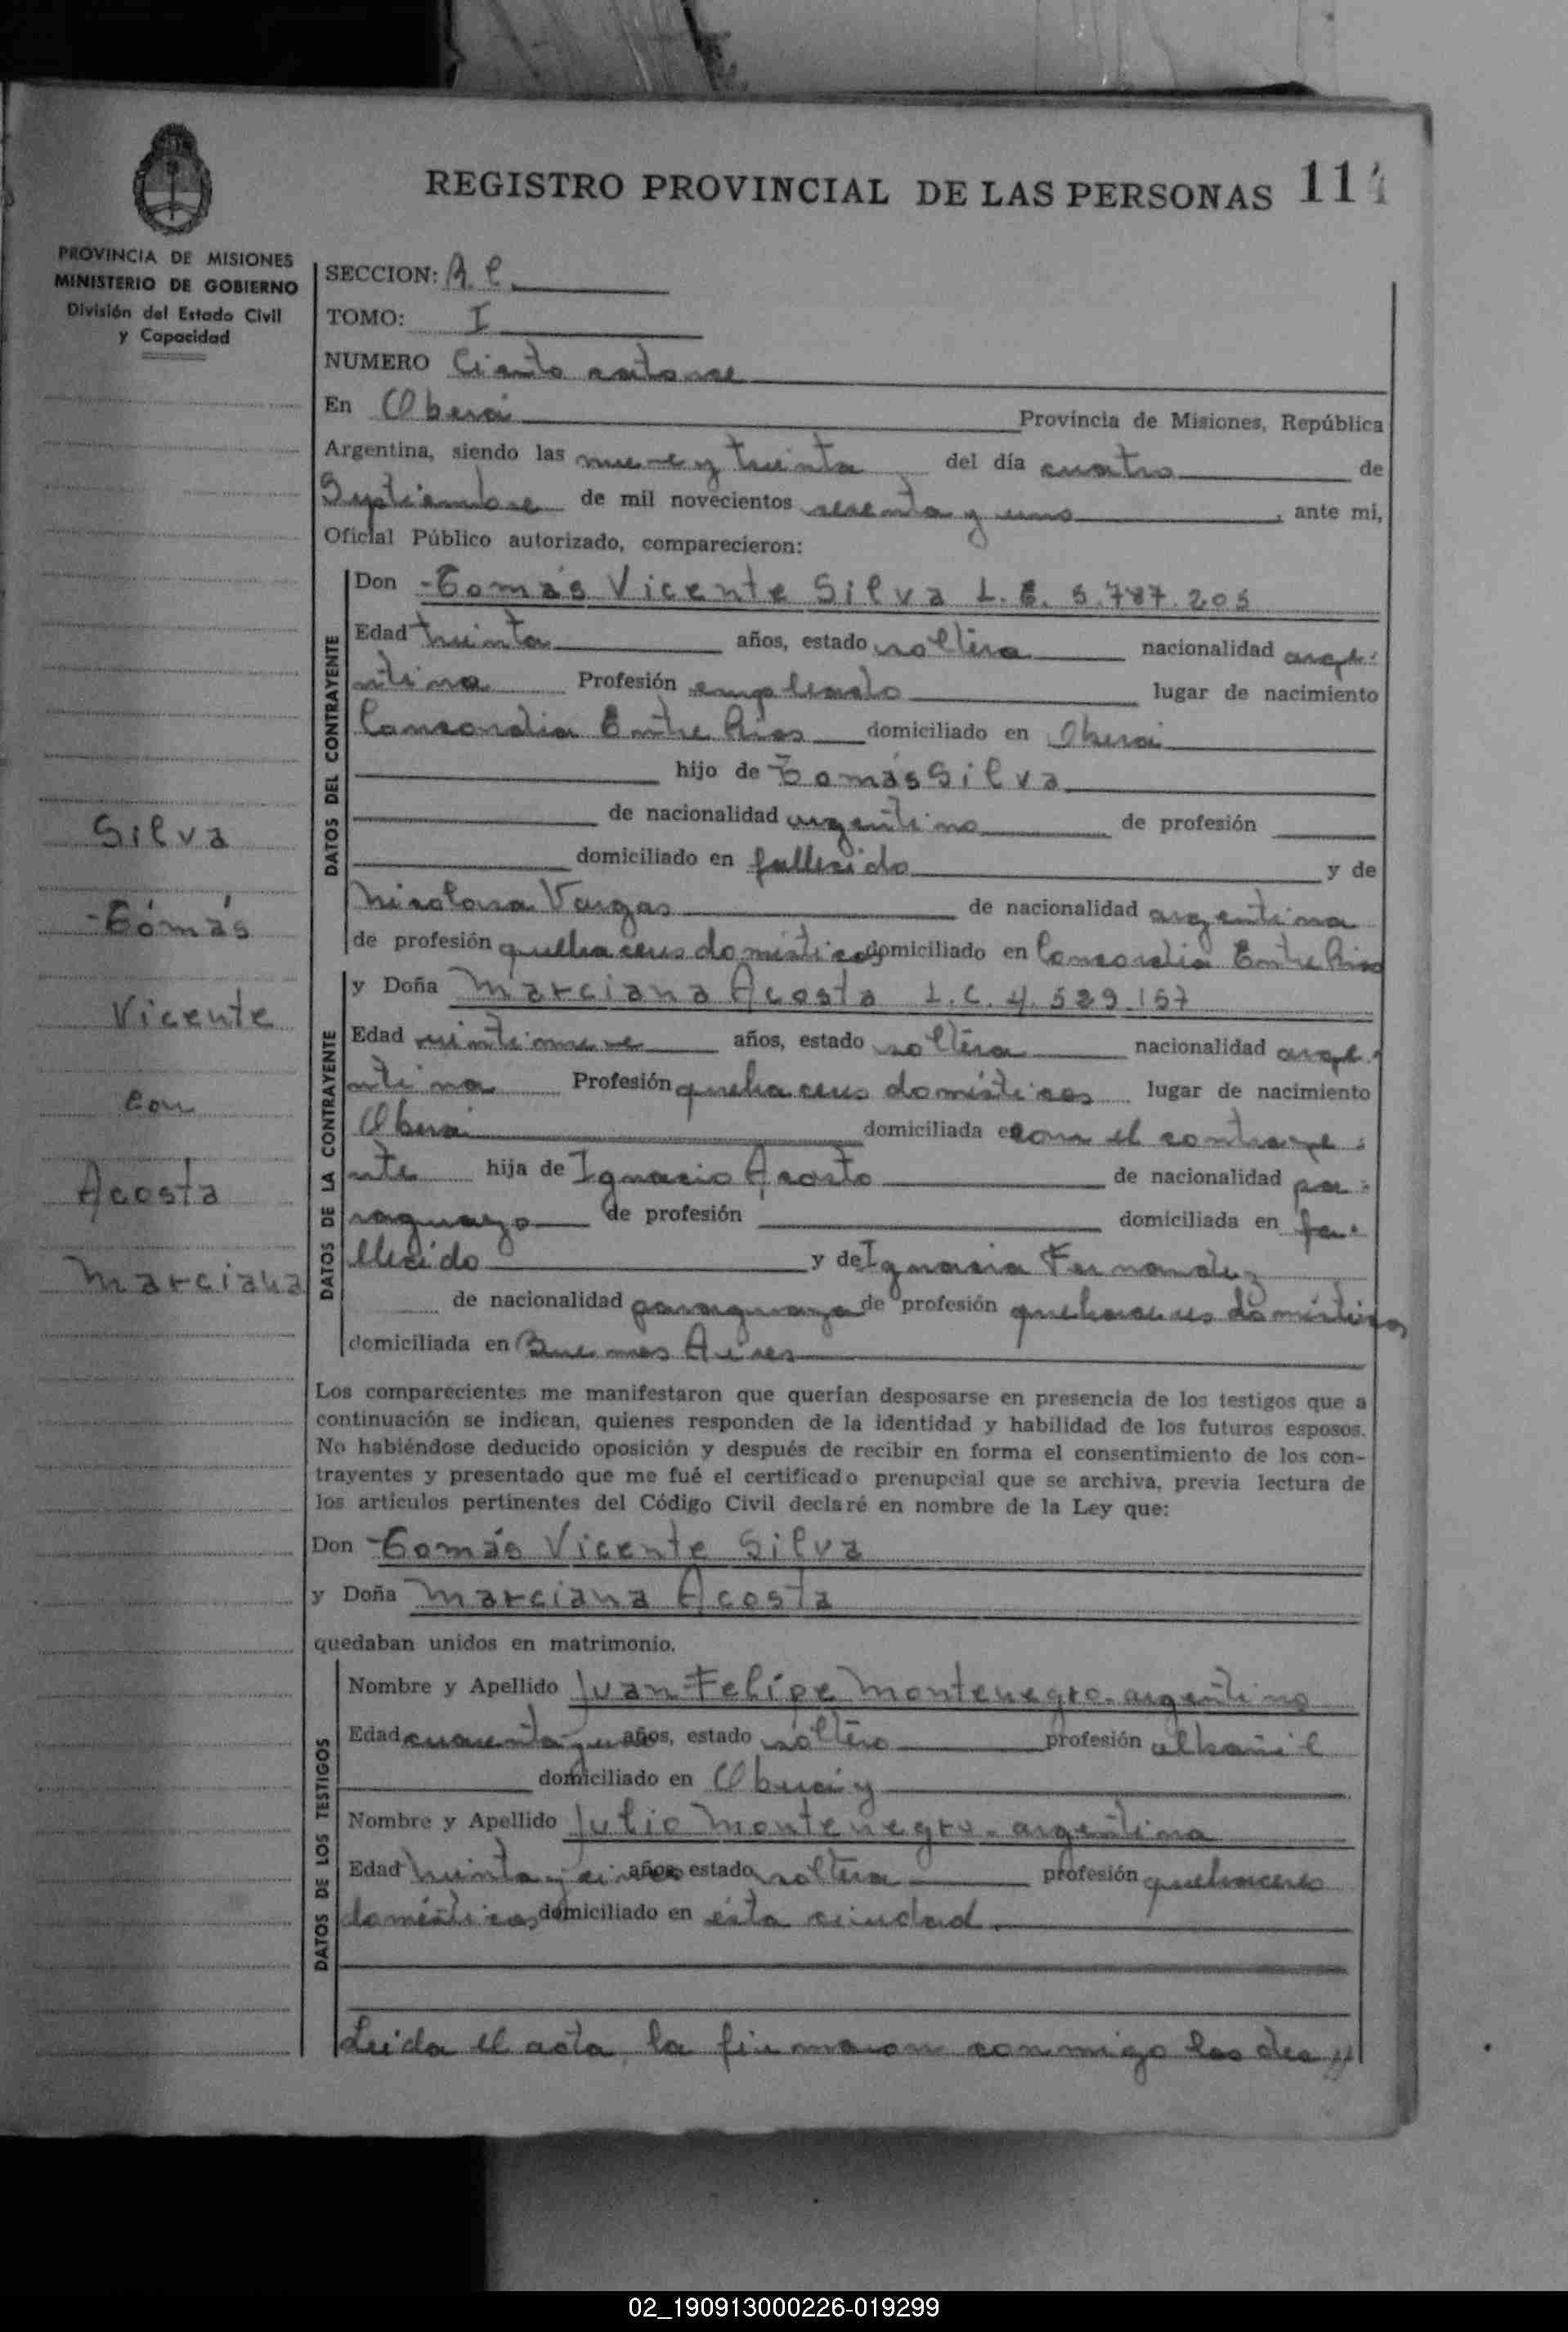 REGISTRO PROVINCIAL DE LAS PERSONAS 114
PROVINCIA DE MISIONES
MINISTERIO DE GOBIERNO
División del Estado Civil
y Capacidad
SECCION:
TOMO: I
NUMERO Ciento catorce
En Oberá Provincia de Misiones, República
Argentina, siendo las nueve y treinta del día cuatro de
Septiembre de mil novecientos sesenta y uno, ante mi,
Oficial Público autorizado, comparecieron:
DATOS DEL CONTRAYENTE
Don Tomás Vicente Silva L.E. 5.787.205
Edad treinta años, estado soltero nacionalidad arge-
ntina Profesión empleado lugar de nacimiento
Concordia Entre Rios domiciliado en Oberá
hijo de Tomás Silva
de nacionalidad argentino de profesión
domiciliado en fallecido y de
Nicolasa Vargas de nacionalidad argentina
de profesión quehaceres domésticos domiciliado en Concordia Entre Rios
DATOS DE LA CONTRAYENTE
y Doña Marciana Acosta L.C. 4.529.157
Edad veintinueve años, estado soltera nacionalidad arge-
ntina Profesión quehaceres domésticos lugar de nacimiento
Oberá domiciliada en con el contraye-
nte hija de Ignacio Acosta de nacionalidad pa-
raguayo de profesión domiciliada en fa-
llecido y de Ignacia Fernandez
de nacionalidad paraguaya de profesión quehaceres domésticos
domiciliada en Buenos Aires
Los comparecientes me manifestaron que querían desposarse en presencia de los testigos que a
continuación se indican, quienes responden de la identidad y habilidad de los futuros esposos.
No habiéndose deducido oposición y después de recibir en forma el consentimiento de los con-
trayentes y presentado que me fué el certificado prenupcial que se archiva, previa lectura de
los artículos pertinentes del Código Civil declaré en nombre de la Ley que:
Don Tomás Vicente Silva
y Doña Marciana Acosta
quedaban unidos en matrimonio.
DATOS DE LOS TESTIGOS
Nombre y Apellido Juan Felipe Montenegro - argentino
Edad cuarenta y años, estado soltero profesión albañil
domiciliado en Oberá y
Nombre y Apellido Julia Montenegro - argentina
Edad treinta y cinco años estado soltera profesión quehaceres
domésticos domiciliado en esta ciudad.
Leida el acta, la firmaron conmigo los dec
Silva
Tomás
Vicente
con
Acosta
Marciana
02_190913000226-019299